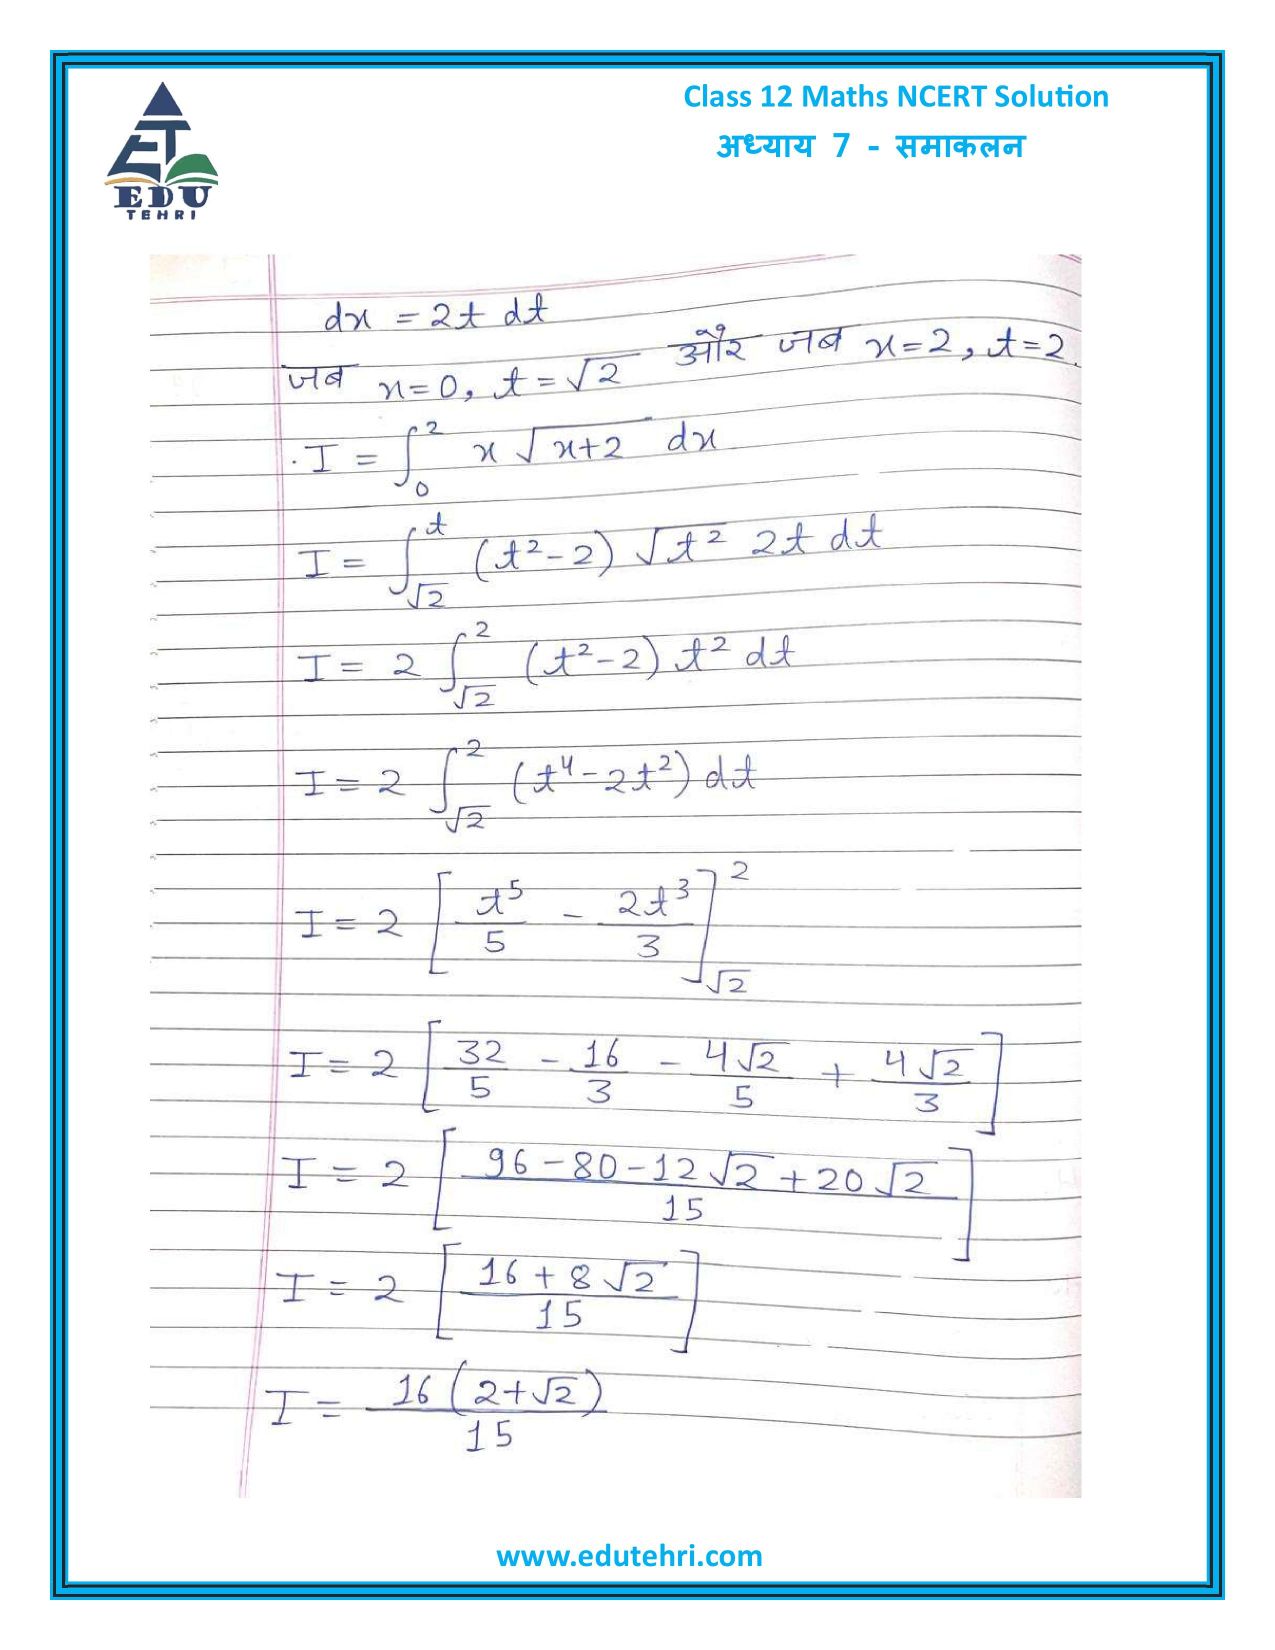 EDU
TEHRI
Class 12 Maths NCERT Solution
अध्याय 7 - समाकलन
dx = 2t dt
जब x=0, t=√2 और जब x=2, t=2.
. I = ∫₀² x √(x+2) dx
I = ∫_√2^t (t²-2) √(t²) 2t dt
I = 2 ∫_√2^2 (t²-2) t² dt
I = 2 ∫_√2^2 (t⁴-2t²) dt
I = 2 [t⁵/5 - 2t³/3]_√2^2
I = 2 [32/5 - 16/3 - 4√2/5 + 4√2/3]
I = 2 [(96-80-12√2+20√2)/15]
I = 2 [(16+8√2)/15]
I = 16(2+√2)/15
www.edutehri.com